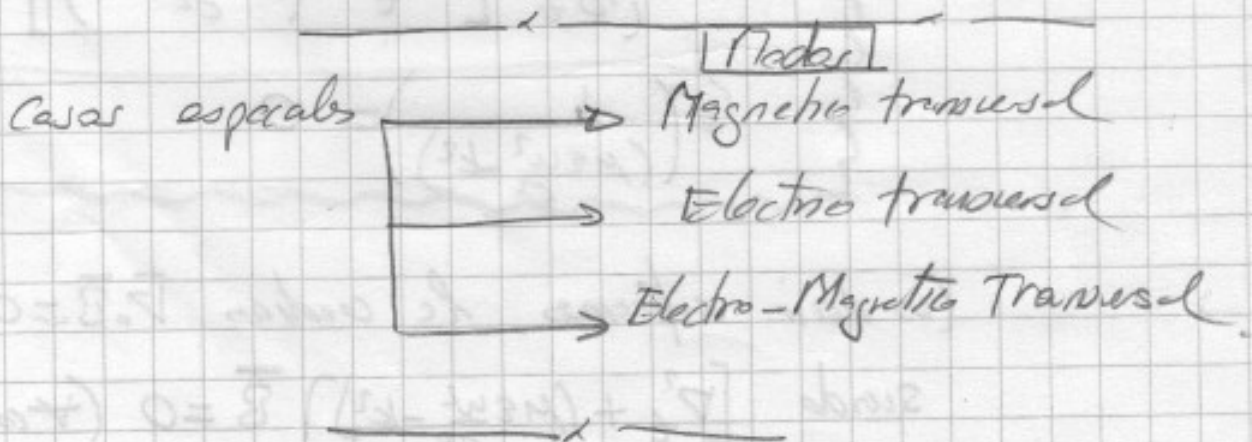 Modos
Casos especiales Magnetico transversal
Electrico transversal
Electro-Magnetico Transversal.